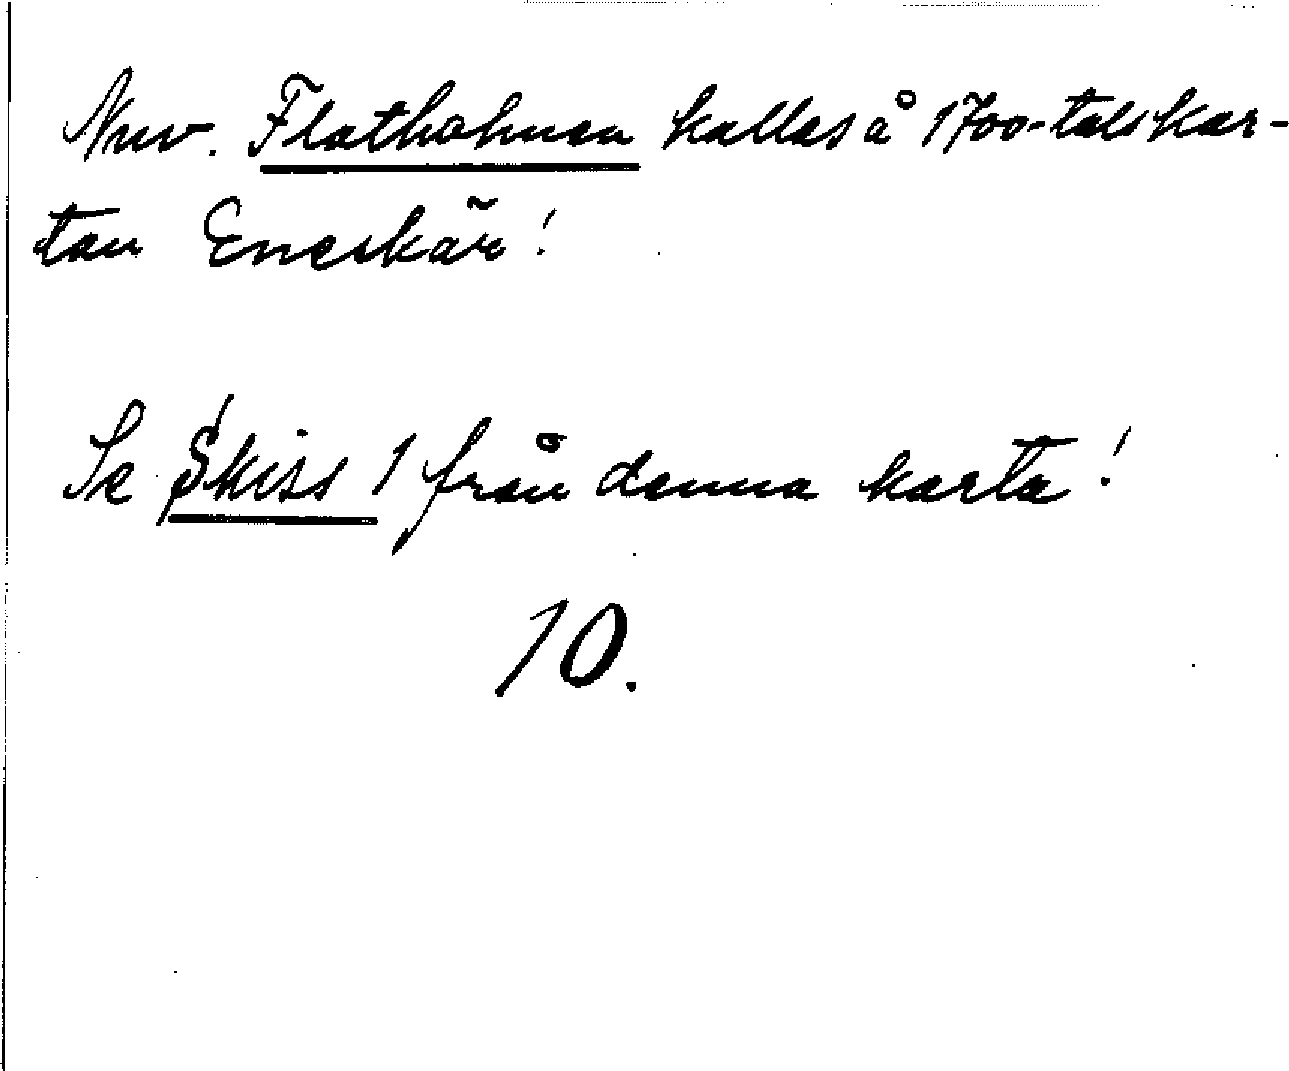 Nuv. Flatholmen kallas å 1700-talskar-
tan Eneskär!
Se Skiss 1 från denna karta!
10.